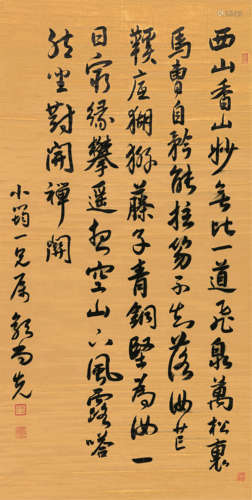 西山香山妙無比一道飛泉萬松裏
馬曹自矜能拄笏不知落汝芒
鞵底猢猻藤子青銅堅為汝一
日窮緣攀遥想空山下風露嗒
然坐對開禪關
小蕅一兄属 郭尚先